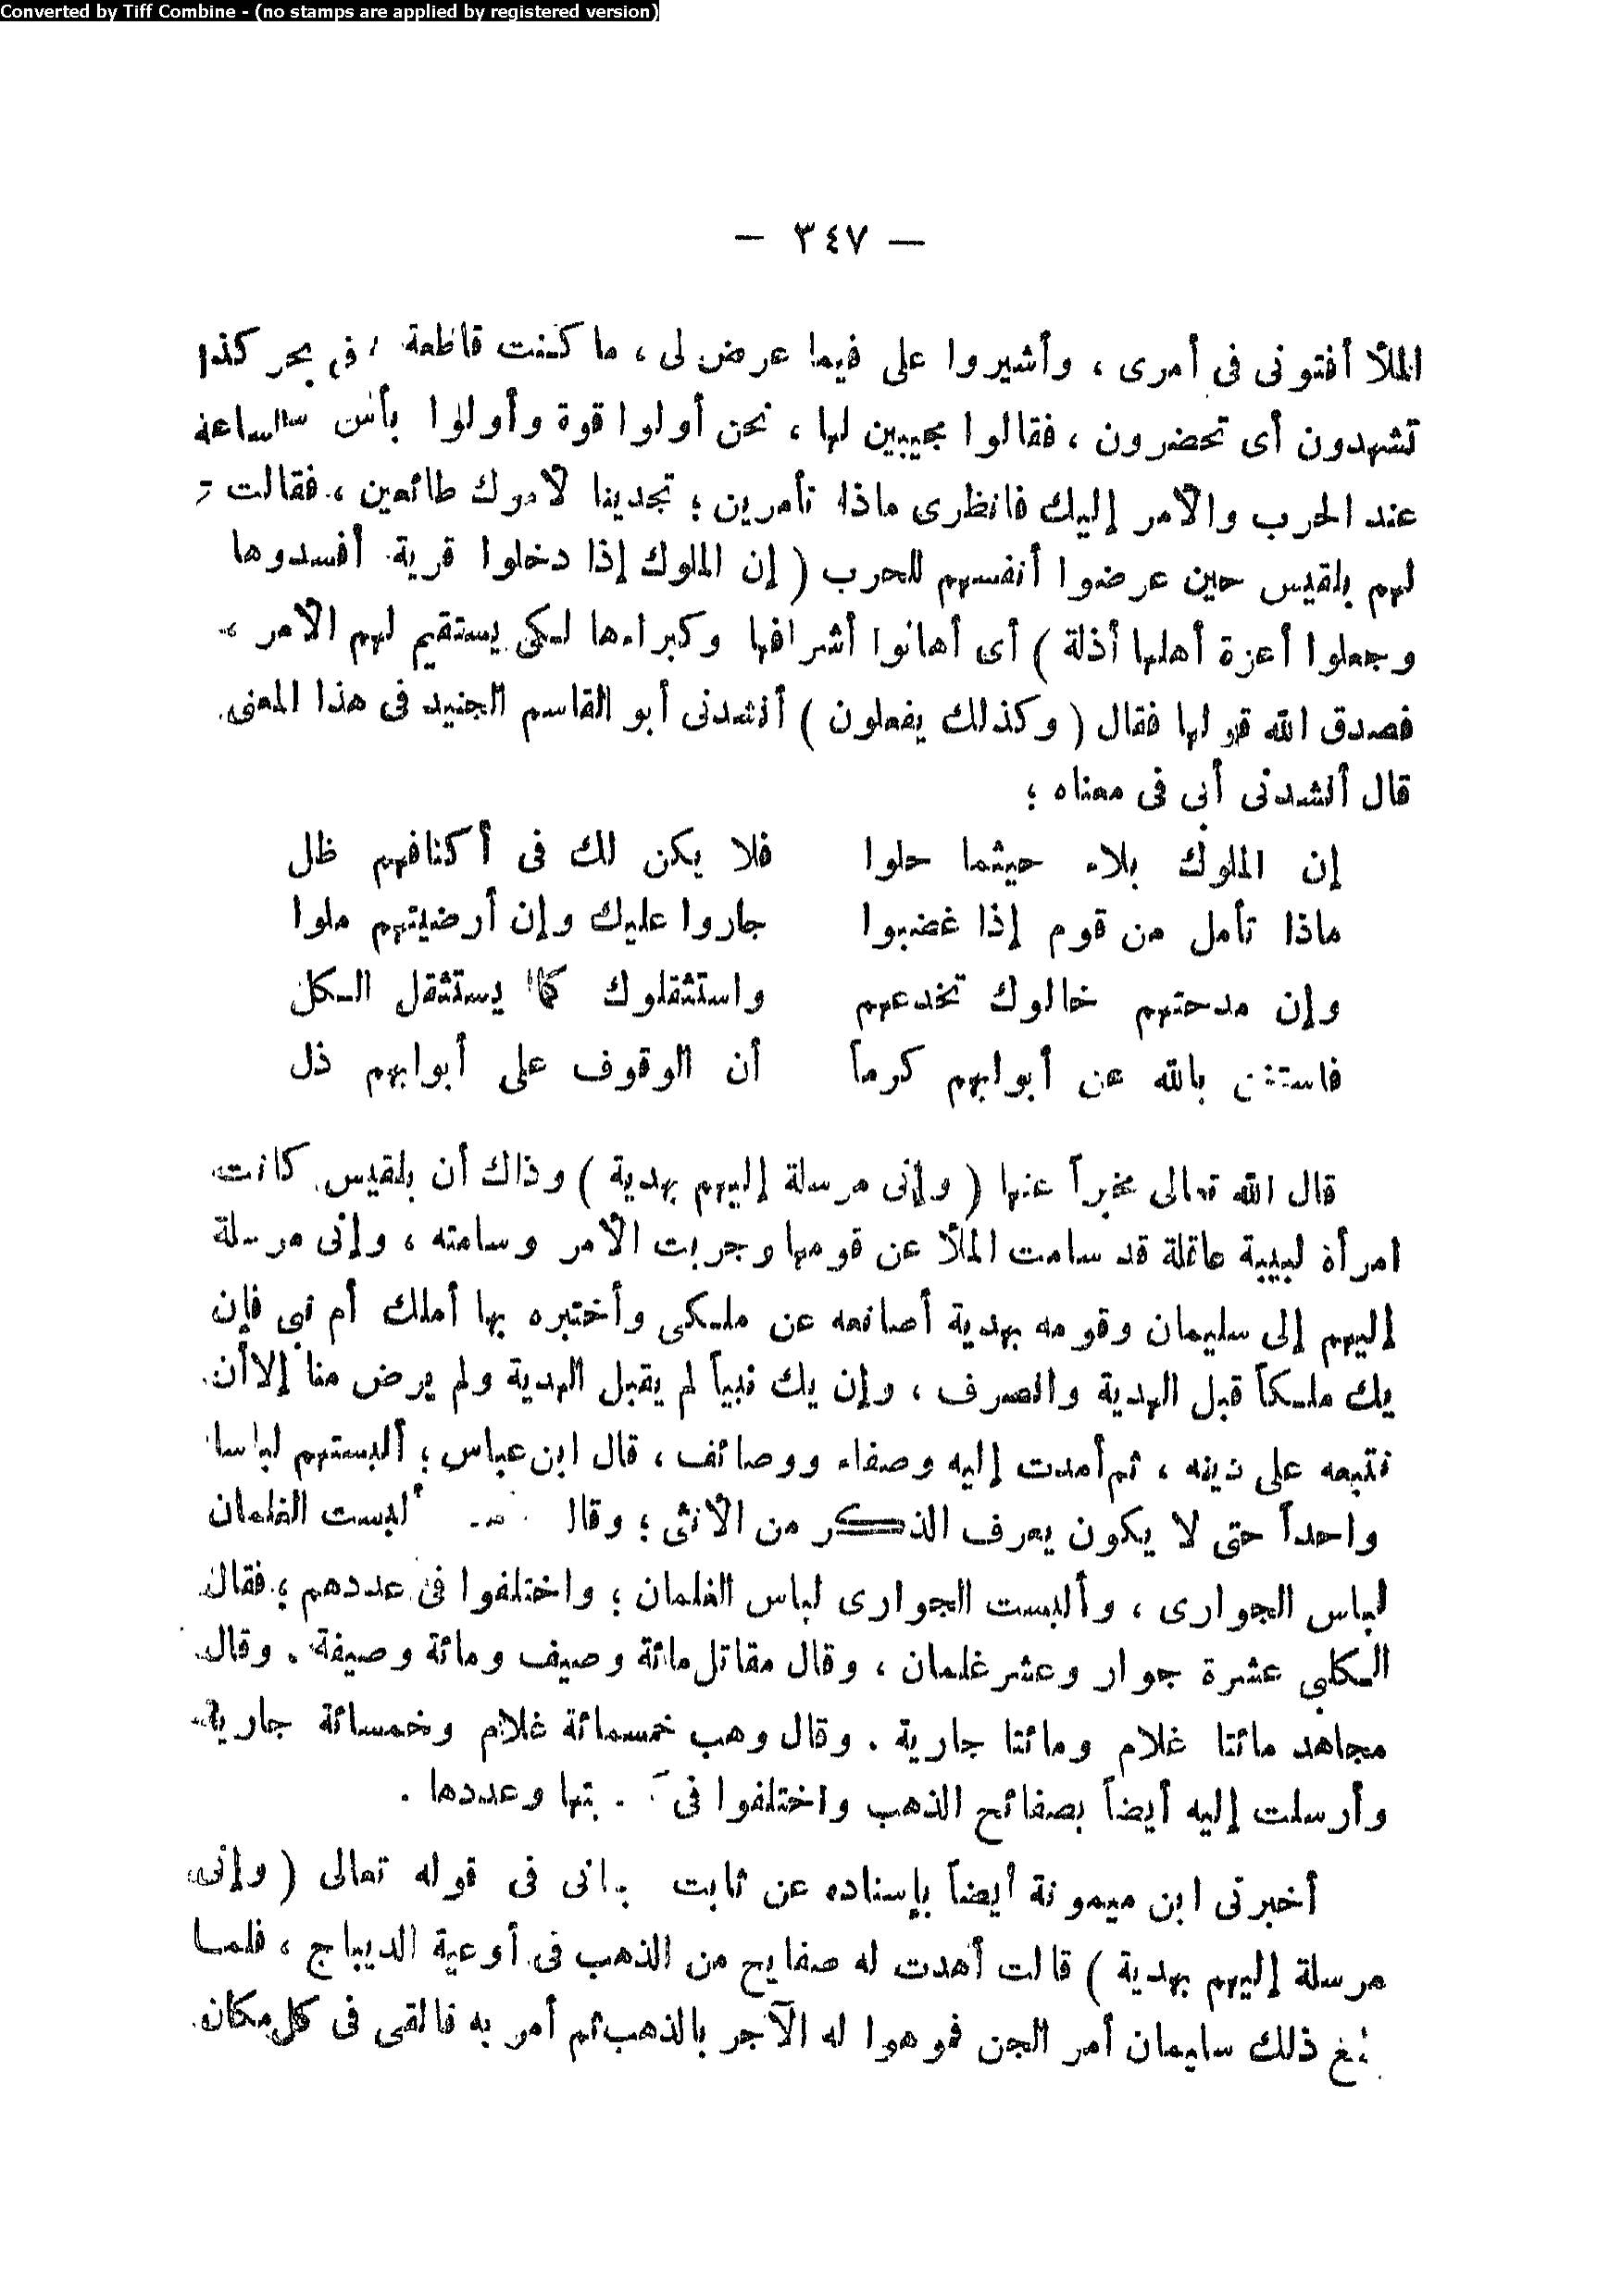 Converted by Tiff Combine - (no stamps are applied by registered version)
— ٣٤٧ —
الملأ أفتونى فى أمرى ، وأشيروا على فيما عرض لى ، ما كنت قاطعة
تشهدون أى تحضرون ، فقالوا مجيبين لها ، نحن أولوا قوة وأولوا بأس
عند الحرب والأمر إليك فانظرى ماذا تأمرين ؛ تجدينا لأمرك طائعين ، فقالت
لهم بلقيس حين عرضوا أنفسهم للحرب ( إن الملوك إذا دخلوا قرية أفسدوها
وجعلوا أعزة أهلها أذلة ) أى أهانوا أشرافها وكبراءها لكى يستقيم لهم الأمر ،
فصدق الله قولها فقال ( وكذلك يفعلون ) أنشدنى أبو القاسم الجنيد فى هذا المعنى
قال أنشدنى أبى فى معناه ؛
إن الملوك بلاء حيثما حلوا فلا يكن لك فى أكنافهم ظل
ماذا تأمل من قوم إذا غضبوا جاروا عليك وإن أرضيتهم ملوا
وإن مدحتهم خالوك تخدعهم واستثقلوك كما يستثقل الكل
بالله عن أبوابهم كرماً أن الوقوف على أبوابهم ذل
قال الله تعالى مخبراً عنها ( وإنى مرسلة إليهم بهدية ) وذاك أن بلقيس كانت
امرأة لبيبة عاقلة قد سامت الملأ عن قومها وجربت الأمر وسامته ، وإنى مرسلة
إليهم إلى سليمان وقومه بهدية أصانعه عن ملكى وأختبره بها أملك أم نبى فإن
يك ملكاً قبل الهدية وانصرف ، وإن يك نبياً لم يقبل الهدية ولم يرض منا إلا أن
نتبعه على دينه ، ثم أهدت إليه وصفاء ووصائف ، قال ابن عباس ؛ ألبستهم لباسا
واحداً حتى لا يكون يعرف الذكر من الأنثى ؛ وقال ألبست الغلمان
لباس الجوارى ، وألبست الجوارى لباس الغلمان ؛ واختلفوا فى عددهم ؛ فقال
الكلبى عشرة جوار وعشر غلمان ، وقال مقاتل مائة وصيف ومائة وصيفة . وقال
مجاهد مائتا غلام ومائتا جارية . وقال وهب خمسمائة غلام وخمسائة جارية
وأرسلت إليه أيضاً بصفائح الذهب واختلفوا فى وعددها .
أخبرنى ابن ميمونة أيضاً بإسناده عن ثابت فى قوله تعالى ( وإنى
مرسلة إليهم بهدية ) قالت أهدت له صفايح من الذهب فى أوعية الديباج ، فلما
ذلك سليمان أمر الجن فموهوا له الآجر بالذهب ثم أمر به فالقى فى كل مكان